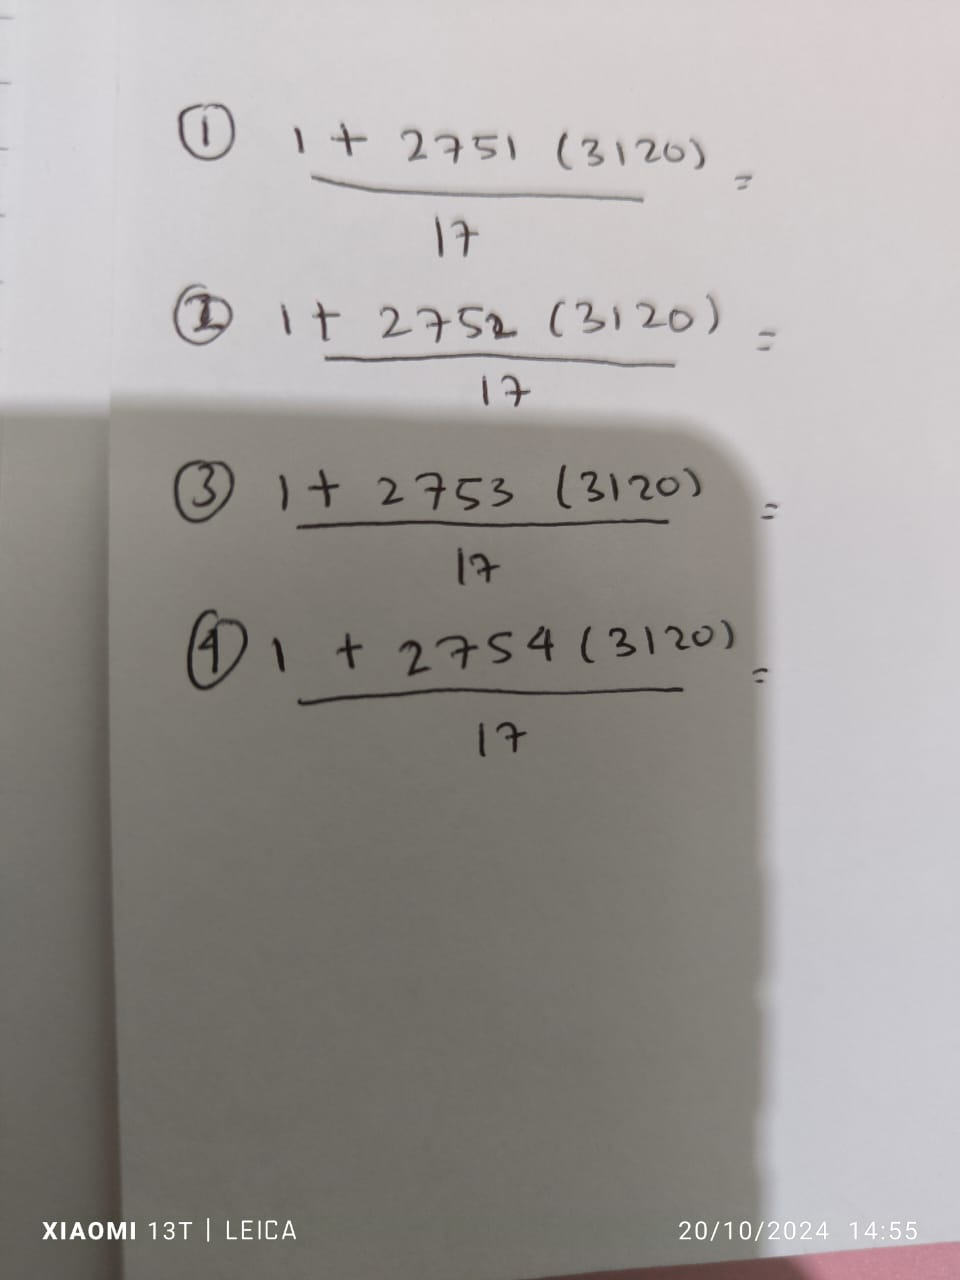 ① 1 + 2751 (3120) =
17
② 1 + 2752 (3120) =
17
③ 1 + 2753 (3120) =
17
④ 1 + 2754 (3120) =
17
XIAOMI 13T | LEICA
20/10/2024 14:55